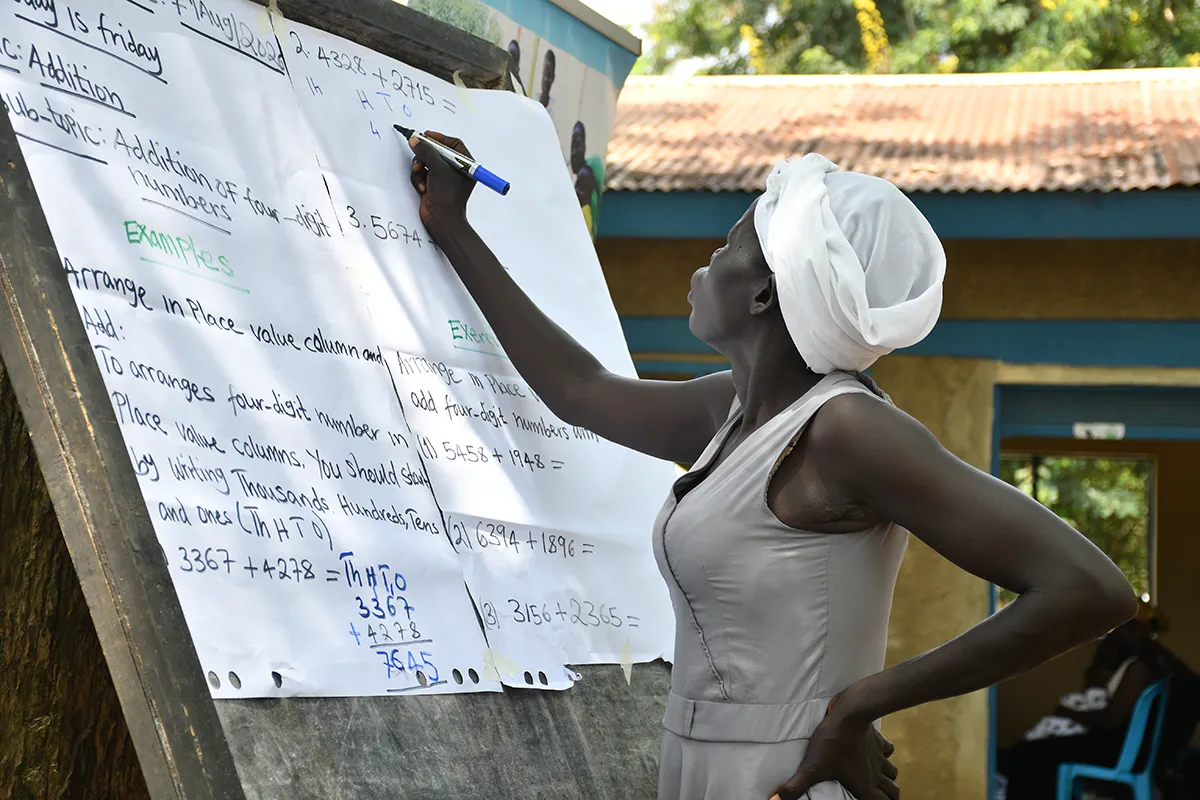 day is friday
Aug
c: Addition
ub-topic: Addition of four-digit
numbers
Examples
Arrange in Place value column and
Add:
To arranges four-digit number in
Place value columns. You should start
by writing Thousands. Hundreds, Tens
and ones (Th H T O)
3367 + 4278 = Th H T O
3367
+ 4278
7645
2. 4328 + 2715 =
Th H T O
4
3. 5674
Exer
Arrange in Place
add four-digit numbers
(1) 5458 + 1948 =
(2) 6394 + 1896 =
(3) 3156 + 2365 =